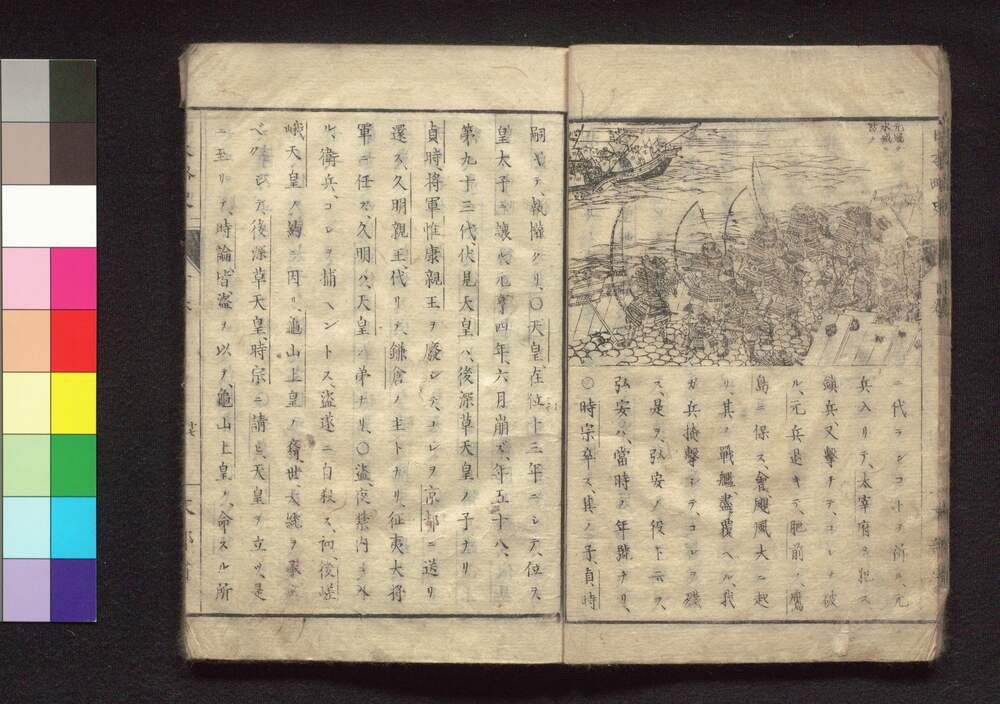 ニ代ランコトヲ祈ル、元
兵入リテ、太宰府ヲ犯ス
鎮兵、又撃チテ、コレヲ破
ル、元兵退キテ、肥前ノ鷹
島ニ保ス、會颶風大ニ起
リ、其ノ戰艦盡覆ヘル、我
ガ兵掩撃シテコレヲ殲
ス、是ヲ、弘安ノ役ト云フ、
弘安ハ、當時ノ年號ナリ、
○時宗卒ス、其ノ子、貞時
嗣ギテ、執權タリ、○天皇、在位十三年ニシテ、位ヲ
皇太子ニ讓ル、元亨四年、六月崩ズ、年五十八、
第九十三代伏見天皇ハ、後深草天皇ノ子ナリ
貞時、將軍惟康親王ヲ廢シテ、コレヲ京都ニ送リ
還ス、久明親王代リテ、鎌倉ノ主トナリ、征夷大將
軍ニ任ズ、久明ハ、天皇ノ弟ナリ、○盜夜禁内ニ入
ル、衛兵、コレヲ捕ヘントス、盜遂ニ自殺ス、初、後嵯
峨天皇ノ
ニ因リ、龜山上皇ノ裔世大統ヲ承ク
ベク
後深草天皇時宗ニ請ヒ、天皇ヲ立ツ、是
ニ至リテ、時論皆、盜ヲ以テ、龜山上皇ノ、命スル所